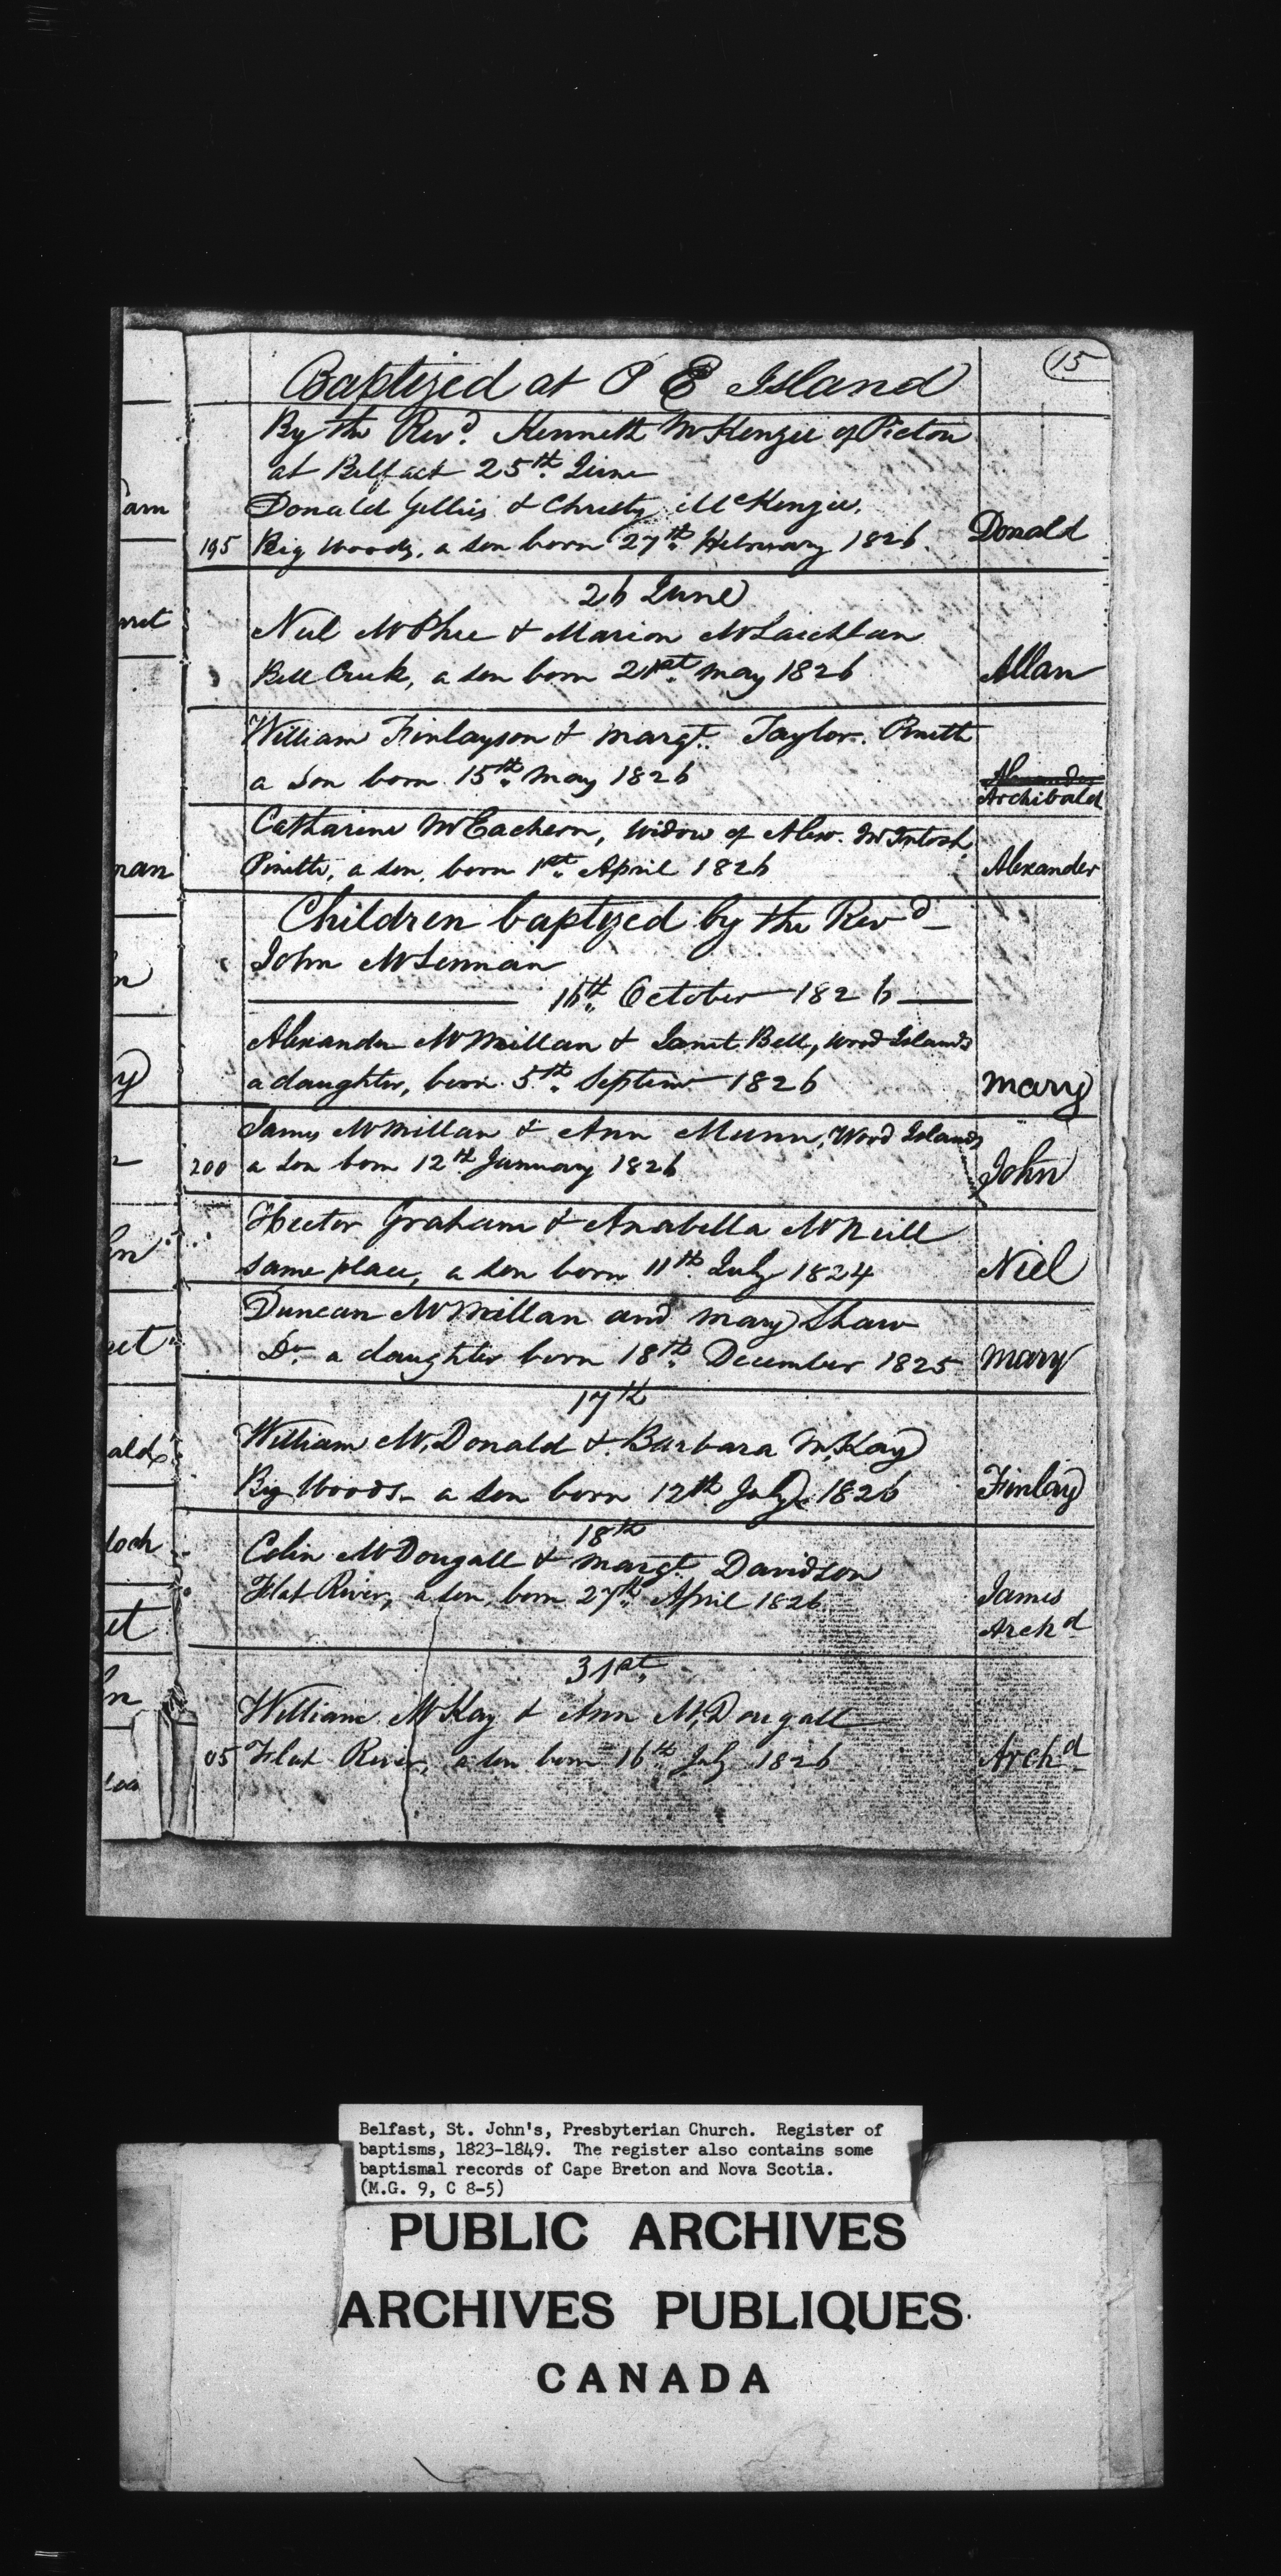 15
Baptized at P E Island
By the Revd. Kenneth McKenzie of Picton
at Belfast 25th. June
Donald Gillis & Christy McKenzie,
195 Big Woods, a son born 27th. February 1826. Donald
26 June
Neil McPhee & Marion McLauchlan
Bell Creek, a son born 21st. May 1826 Allan
William Finlayson & Margt. Taylor. Pinette
a Son born 15th. May 1826 Alexander
Archibald
Catharine McEachern, Widow of Alexr. McIntosh
Pinette, a son, born 1st. April 1826 Alexander
Children baptized by the Revd
John McLennan
16th. October 1826
Alexander McMillan & Janet Bell, Wood Islands
a daughter, born 5th. Septemr 1826 Mary
James McMillan & Ann Munn, Wood Islands
200 a son born 12th January 1826 John
Hector Graham & Anabella McNeill
same place, a son born 11th. July 1824 Niel
Duncan McMillan and Mary Shaw
Do. a daughter born 18th. December 1825 Mary
17th
William McDonald & Barbara McKay
Big Woods - a son born 12th July 1826 Finlay
18th
Colin McDougall & Margt. Davidson
Flat River, a son, born 27th. April 1826 James
Archd
31st.
William McKay & Ann McDougall
05 Flat River, a son born 16th July 1826 Archd
Belfast, St. John's, Presbyterian Church. Register of
baptisms, 1823-1849. The register also contains some
baptismal records of Cape Breton and Nova Scotia.
(M.G. 9, C 8-5)
PUBLIC ARCHIVES
ARCHIVES PUBLIQUES
CANADA